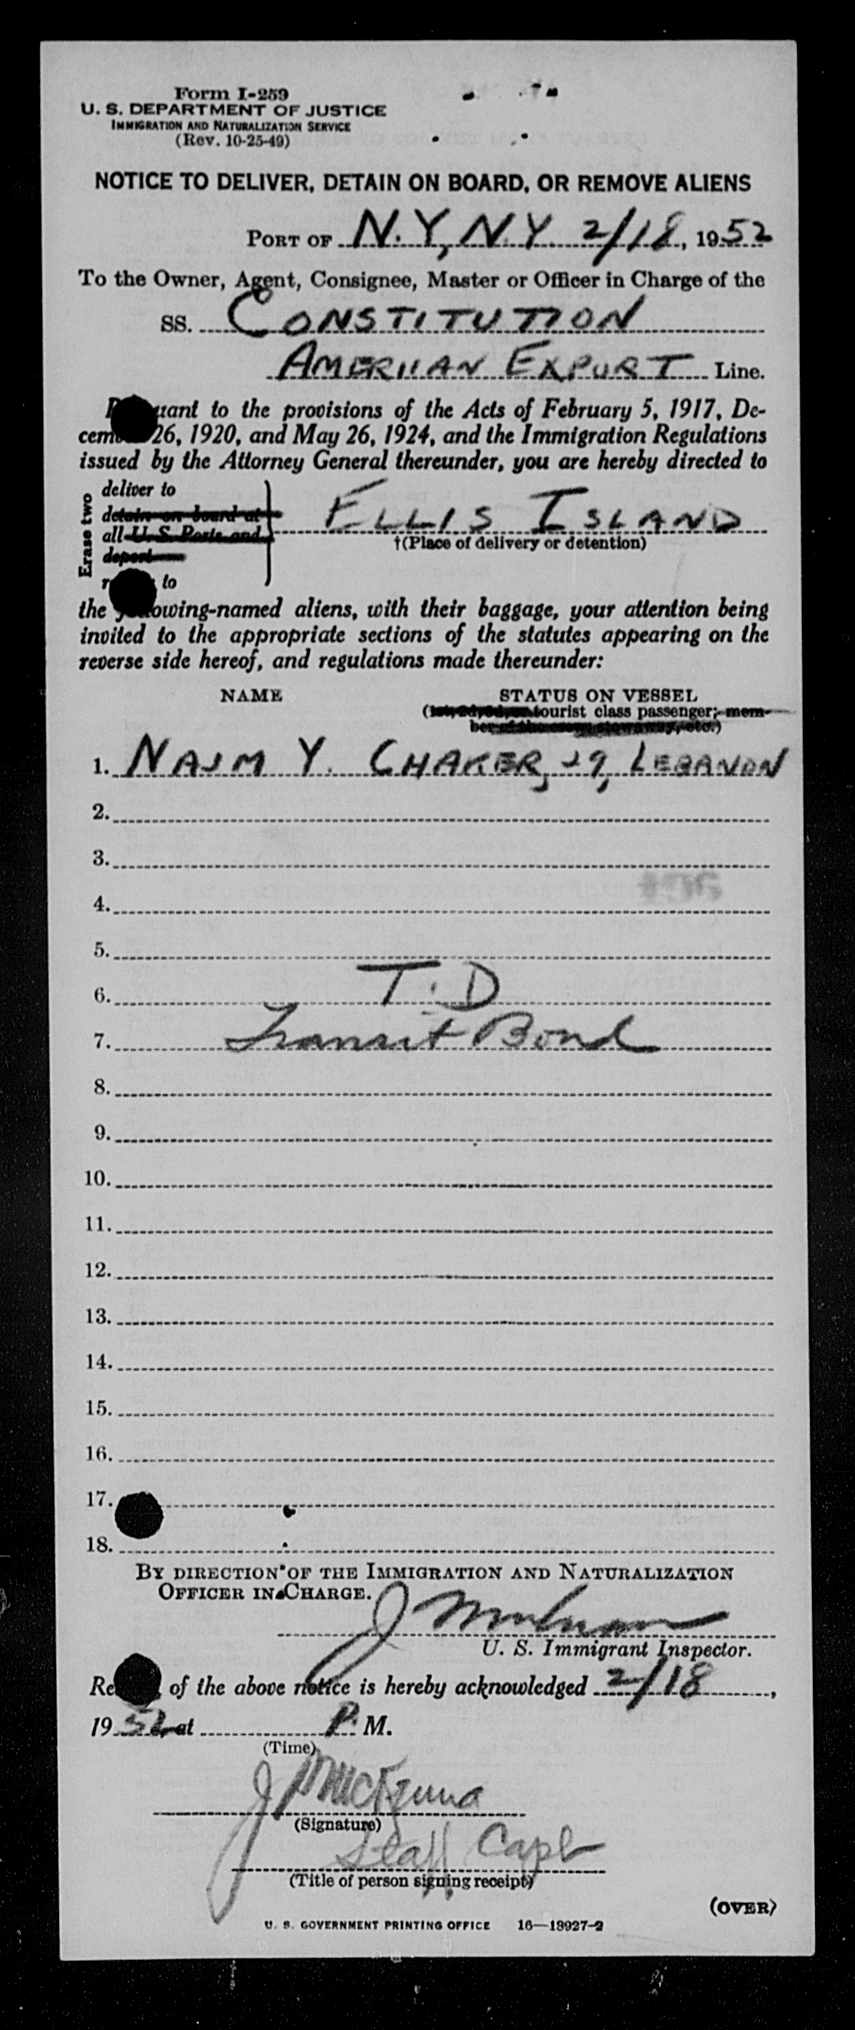 Form I-259
U. S. DEPARTMENT OF JUSTICE
IMMIGRATION AND NATURALIZATION SERVICE
(Rev. 10-25-49)
NOTICE TO DELIVER, DETAIN ON BOARD, OR REMOVE ALIENS
PORT OF N.Y, N.Y. 2/18, 1952
To the Owner, Agent, Consignee, Master or Officer in Charge of the
SS. CONSTITUTION
AMERICAN EXPORT Line.
to the provisions of the Acts of February 5, 1917, De-
26, 1920, and May 26, 1924, and the Immigration Regulations
issued by the Attorney General thereunder, you are hereby directed to
Erase two
deliver to
detain on board at
all U. S. Ports and
deport
to
ELLIS ISLAND
†(Place of delivery or detention)
the following-named aliens, with their baggage, your attention being
invited to the appropriate sections of the statutes appearing on the
reverse side hereof, and regulations made thereunder:
NAME STATUS ON VESSEL
tourist class passenger; mem-
ber of the crew, stowaway, etc.)
1. NAJM Y. CHAKER, 29, LEBANON
2.
3.
4.
5.
6. T.D
7. Transit Bond
8.
9.
10.
11.
12.
13.
14.
15.
16.
17.
18.
BY DIRECTION OF THE IMMIGRATION AND NATURALIZATION
OFFICER IN CHARGE.
U. S. Immigrant Inspector.
of the above notice is hereby acknowledged 2/18,
1952, at P. M.
(Time)
(Signature)
Staff Capt
(Title of person signing receipt)
(OVER)
U. S. GOVERNMENT PRINTING OFFICE 16—18927-2